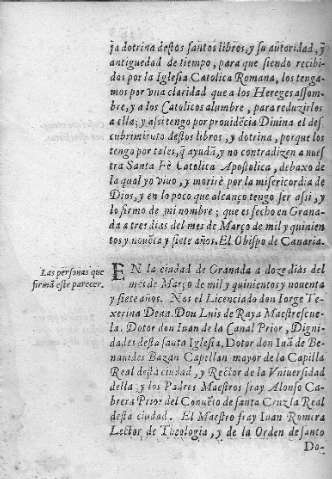 ja dotrina destos santos libros, y su autoridad, y
antiguedad de tiempo, para que siendo recibi-
dos por la Iglesia Catolica Romana, los tenga-
mos por vna claridad que a los Hereges assom-
bre, y a los Catolicos alumbre, para reduzirlos
a ella; y assi tengo por prouidēcia Diuina el des
cubrimiento destos libros, y dotrina, porque los
tengo por tales, q̄ ayudā, y no contradizen a nues
tra Santa Fè Catolica Apostolica, debaxo de
la qual yo viuo, y morirè por la misericordia de
Dios, y en lo poco que alcanço tengo ser assi, y
lo firmo de mi nombre; que es fecho en Grana-
da a tres dias del mes de Março de mil y quinien
tos y nouēta y siete años. El Obispo de Canaria.
Las personas que
firmā este parecer.
EN la ciudad de Granada a doze dias del
mes de Março de mil y quinientos y nouenta
y siete años. Nos el Licenciado don Iorge Te-
xerina Dean. Don Luis de Raya Maestrescue-
la. Dotor don Iuan de la Canal Prior, Digni-
dades desta santa Iglesia. Dotor don Iuā de Be-
nauides Bazan Capellan mayor de la Capilla
Real desta ciudad, y Rector de la Vniuersidad
della; y los Padres Maestros fray Alonso Ca-
brera Prior del Conuēto de santa Cruz la Real
desta ciudad. El Maestro fray Iuan Romera
Lector de Theologia, y de la Orden de santo
Do-